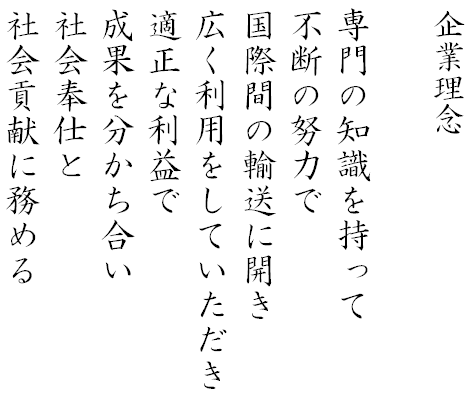 企業理念
専門の知識を持って
不断の努力で
国際間の輸送に開き
広く利用をしていただき
適正な利益で
成果を分かち合い
社会奉仕と
社会貢献に務める